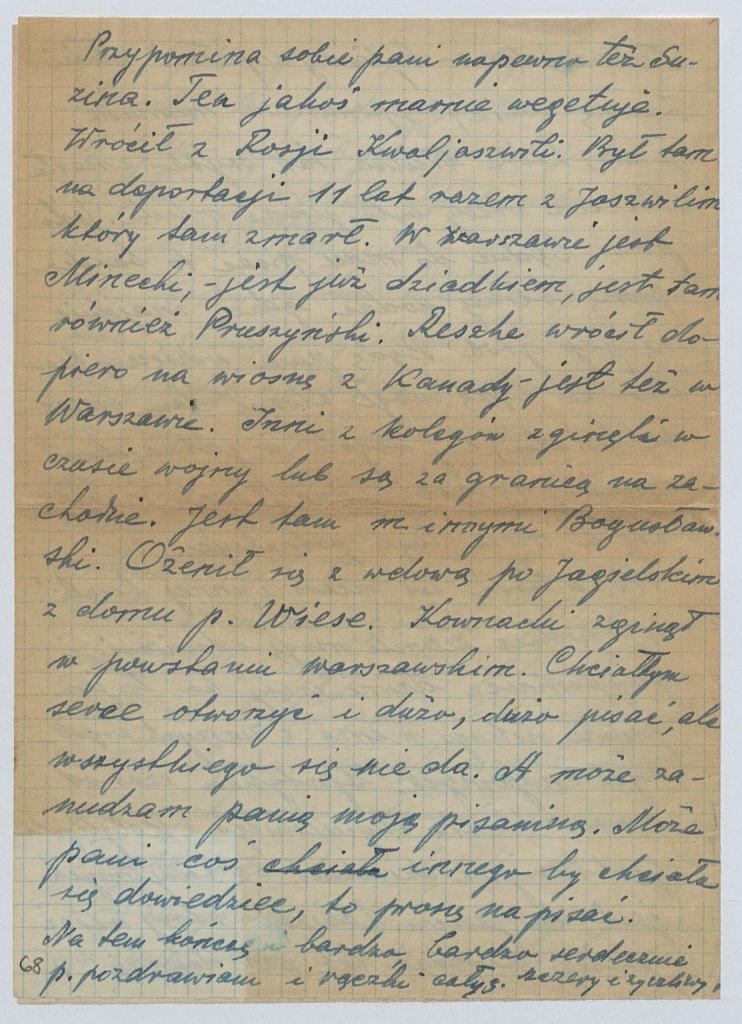 Przypomina sobie pani napewno też Su-
zina. Ten jakoś marnie wegetuje.
Wrócił z Rosji Kwaljaszwili. Był tam
na deportacji 11 lat razem z Jaszwilim
który tam zmarł. W Warszawie jest
Minecki, - jest już dziadkiem, jest tam
również Pruszyński. Reszke wrócił do-
piero na wiosnę z Kanady - jest też w
Warszawie. Inni z kolegów zginęli w
czasie wojny lub są za granicą na za-
chodzie. Jest tam m. innymi Bogusław-
ski. Ożenił się z wdową po Jagielskim
z domu p. Wiese. Kownacki zginął
w powstaniu warszawskim. Chciałbym
serce otworzyć i dużo, dużo pisać, ale
wszystkiego się nie da. A może za-
nudzam panią moją pisaniną. Może
pani coś chciała innego by chciała
się dowiedzieć, to proszę napisać.
Na tem kończę i bardzo, bardzo serdecznie
68 p. pozdrawiam i rączki całuję. szczery i życzliwy,